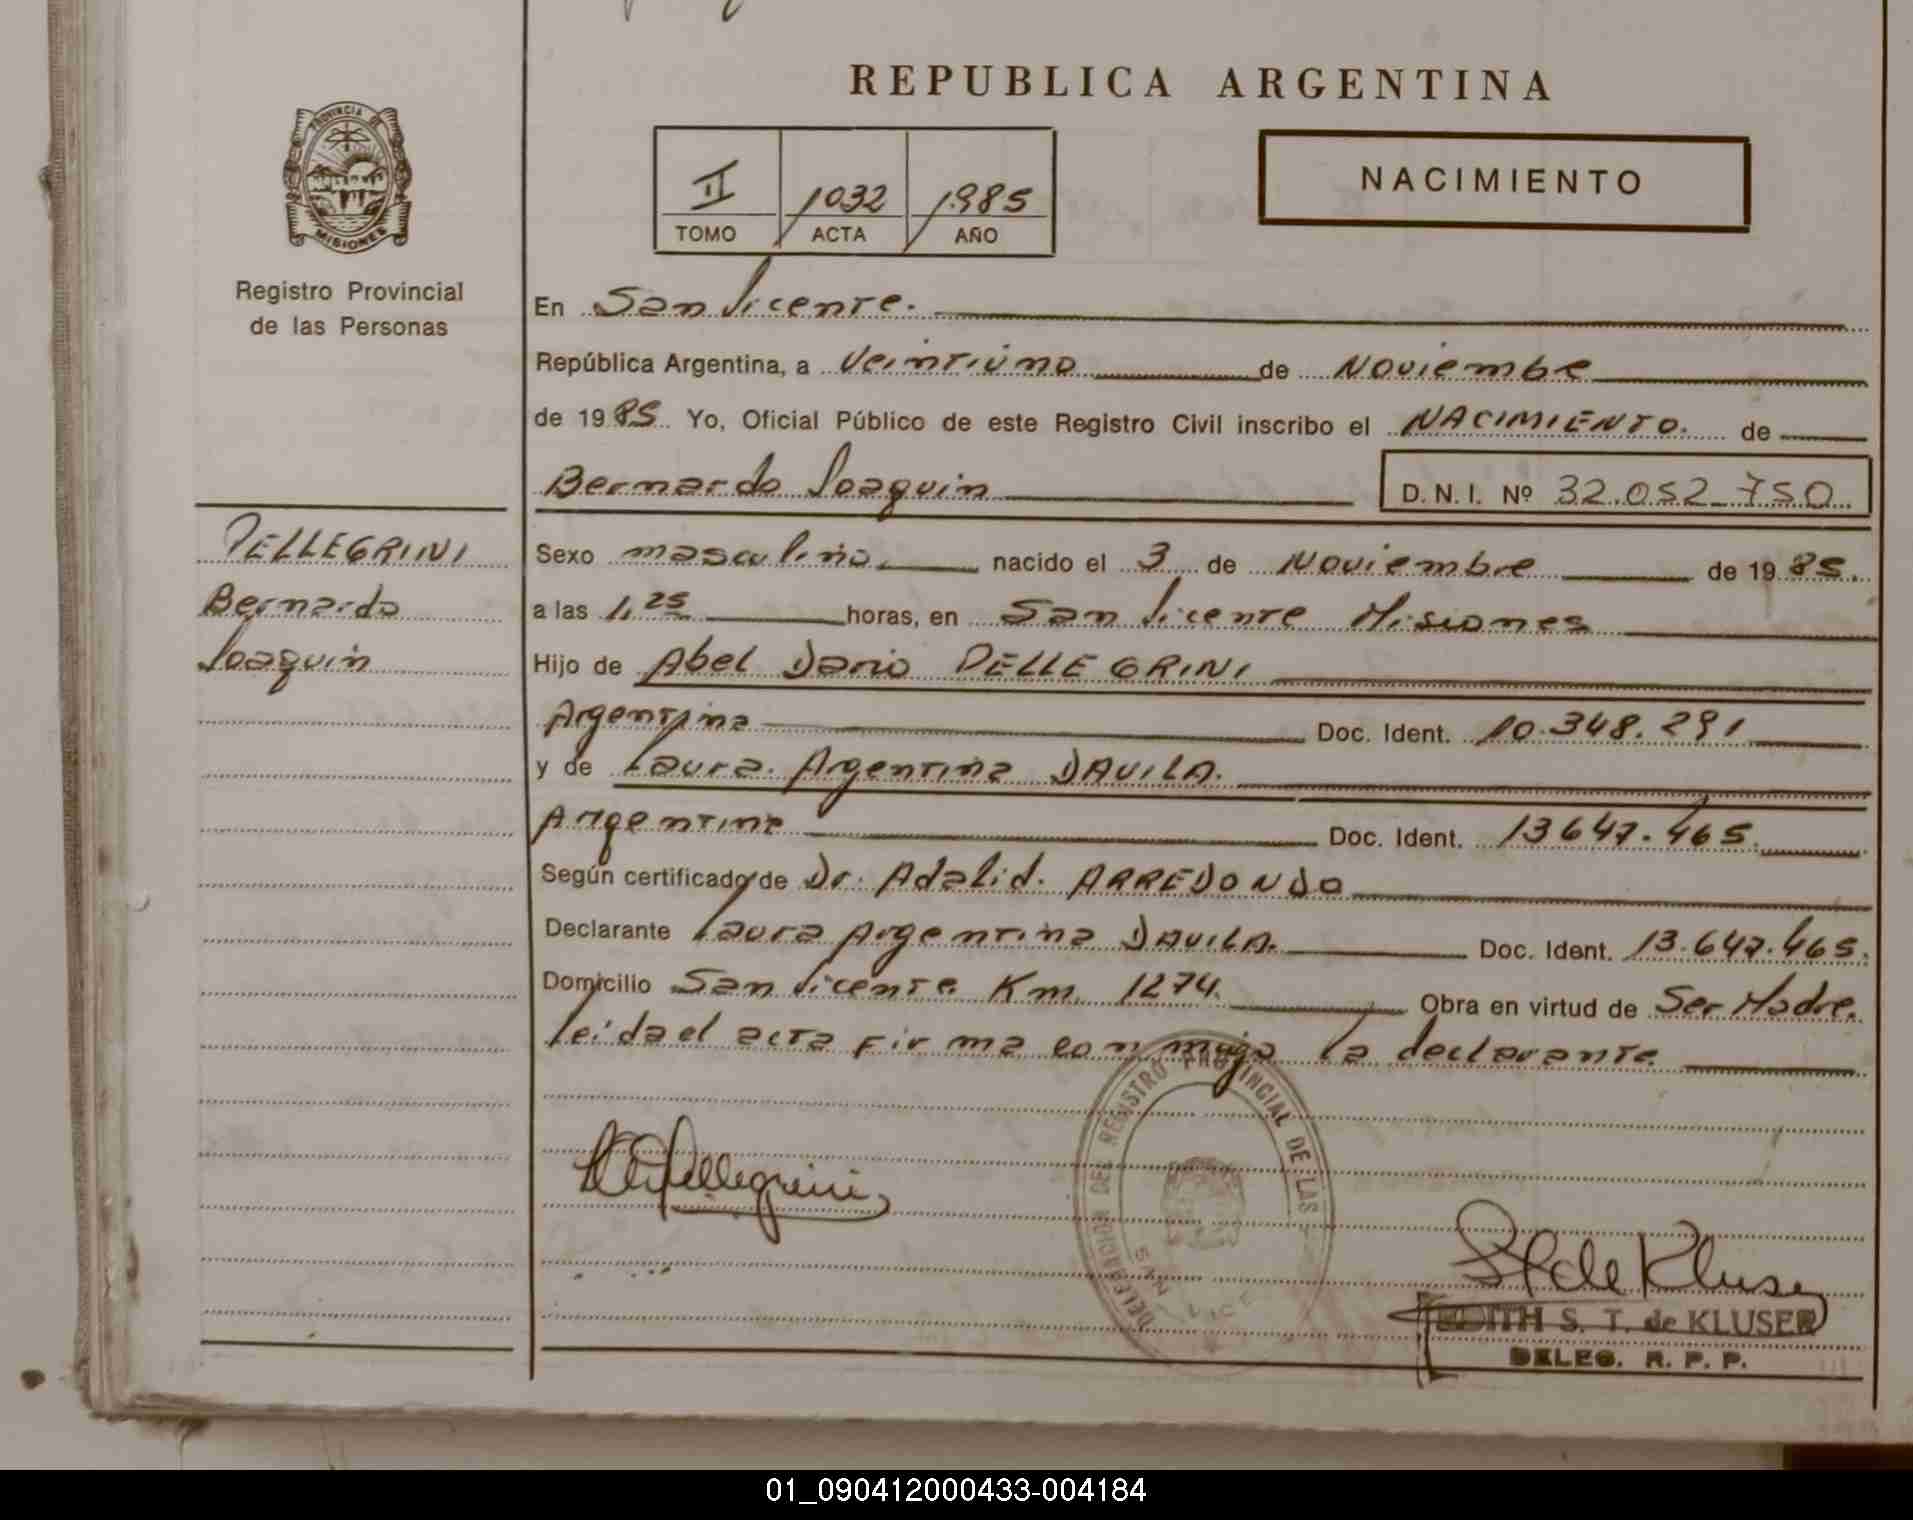 REPUBLICA ARGENTINA
PROVINCIA DE
MISIONES
Registro Provincial
de las Personas
II 1032 1985
TOMO ACTA AÑO
NACIMIENTO
En San Vicente.
República Argentina, a Veintiuno de Noviembre
de 1985 Yo, Oficial Público de este Registro Civil inscribo el NACIMIENTO. de
Bernardo Joaquin D. N. I. Nº 32.052.750
PELLEGRINI
Bernardo
Joaquin
Sexo masculino nacido el 3 de Noviembre de 1985.
a las 1,25 horas, en San Vicente Misiones
Hijo de Abel Dario PELLEGRINI
Argentina Doc. Ident. 10.348.291
y de Laura Argentina DAVILA.
Argentina Doc. Ident. 13647.465.
Según certificado de Dr. Adalid. ARREDONDO
Declarante Laura Argentina DAVILA. Doc. Ident. 13.647.465.
Domicilio San Vicente Km. 1274. Obra en virtud de Ser Madre.
leida el acta firma conmigo la declarante.
DELEGACION DEL REGISTRO PROVINCIAL DE LAS
Pellegrini
de Kluser
EDITH S. T. de KLUSER
DELEG. R. P. P.
01_090412000433-004184